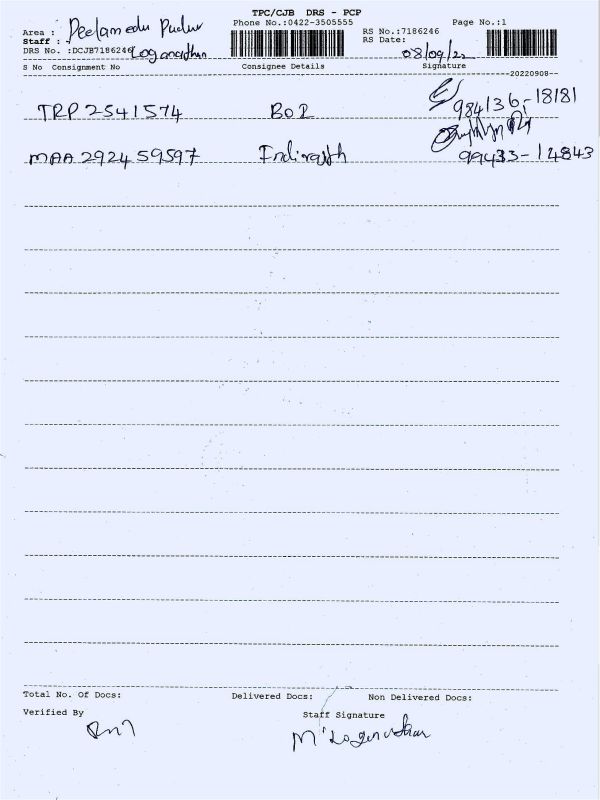 TPC/CJB DRS - PCP
Phone No.:0422-3505555
Page No.:1
Area : Peelamedu Pudur
Staff : Loganadhan
DRS No. :DCJB7186246
RS No.:7186246
RS Date: 08/09/22
S No Consignment No Consignee Details Signature
20220908
TRP 2541574 BOI 984136-18181
MAA 292459597 Indirajith 99433-14843
Total No. Of Docs: Delivered Docs: Non Delivered Docs:
Verified By
Staff Signature